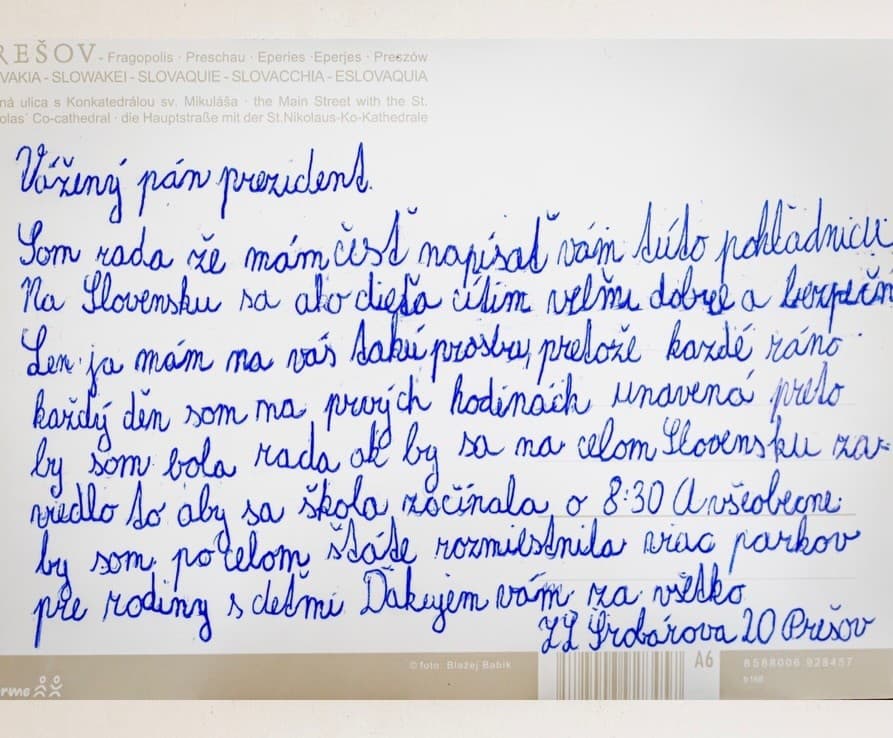 REŠOV - Fragopolis · Preschau · Eperies · Eperjes · Preszów
VAKIA - SLOWAKEI - SLOVAQUIE - SLOVACCHIA - ESLOVAQUIA
ná ulica s Konkatedrálou sv. Mikuláša · the Main Street with the St.
olas´ Co-cathedral · die Hauptstraße mit der St.Nikolaus-Ko-Kathedrale
Vážený pán prezident.
Som rada že mám česť napísať vám túto pohľadnicu
Na Slovensku sa ako dieťa cítim veľmi dobre a bezpečn
Len ja mám na vás takú prosbu, pretože každé ráno
každý děn som na prvých hodinách unavená preto
by som bola rada ak by sa na celom Slovensku za-
viedlo to aby sa škola začínala o 8:30 A všeobecne
by som po celom štáte rozmiestnila viac parkov
pre rodiny s deťmi Ďakujem vám za všetko
Šrobárova 20 Prešov
© foto: Blažej Babik
A6
8588006 928457
rme